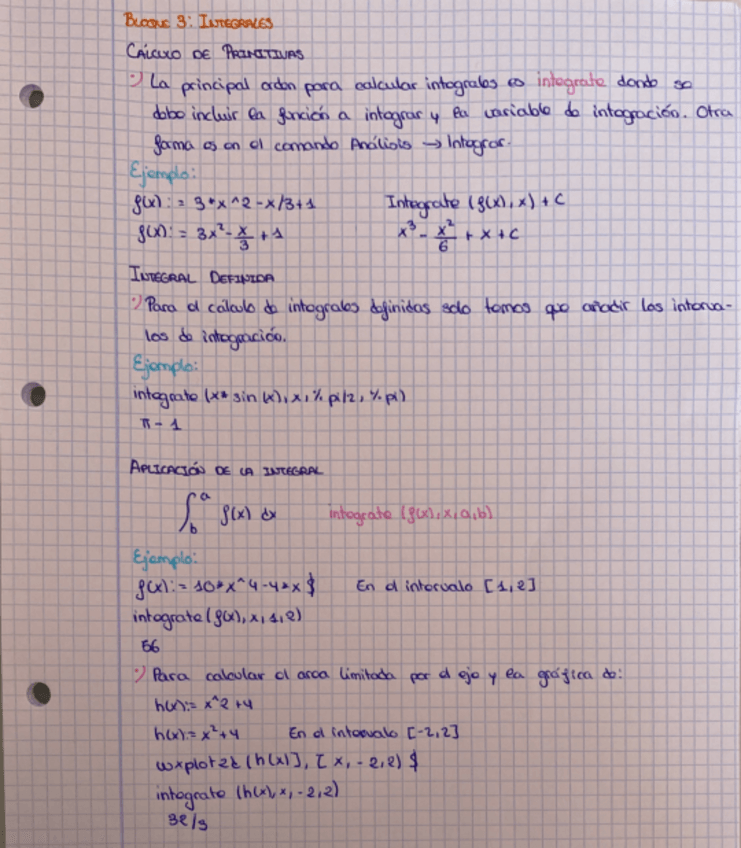 BLOQUE 3: INTEGRALES
CÁLCULO DE PRIMITIVAS
·) La principal orden para calcular integrales es integrate donde se
debe incluir la función a integrar y la variable de integración. Otra
forma es en el comando Análisis → Integrar.
Ejemplo:
f(x):= 3*x^2-x/3+1 Integrate (f(x),x) + C
f(x):= 3x²-x/3+1 x³-x²/6+x+c
INTEGRAL DEFINIDA
·) Para el cálculo de integrales definidas solo temos que añadir los interva-
los de integración.
Ejemplo:
integrate (x* sin (x), x, %pi/2, %pi)
π-1
APLICACIÓN DE LA INTEGRAL
∫ᵇᵃ f(x) dx integrate (f(x),x,a,b)
Ejemplo:
f(x):= 10*x^4-4*x $ En el intervalo [1,2]
integrate (f(x),x,1,2)
56
·) Para calcular el area limitada por el eje y la gráfica de:
h(x):= x^2+4
h(x):= x²+4 En el intervalo [-2,2]
wxplot2d (h(x)], [x,-2,2) $
integrate (h(x),x,-2,2)
32/3